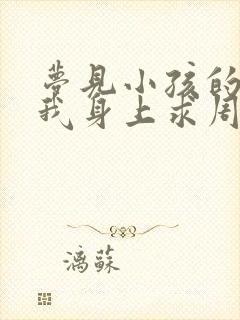 夢見小孩的
我身上求周
漓蘇